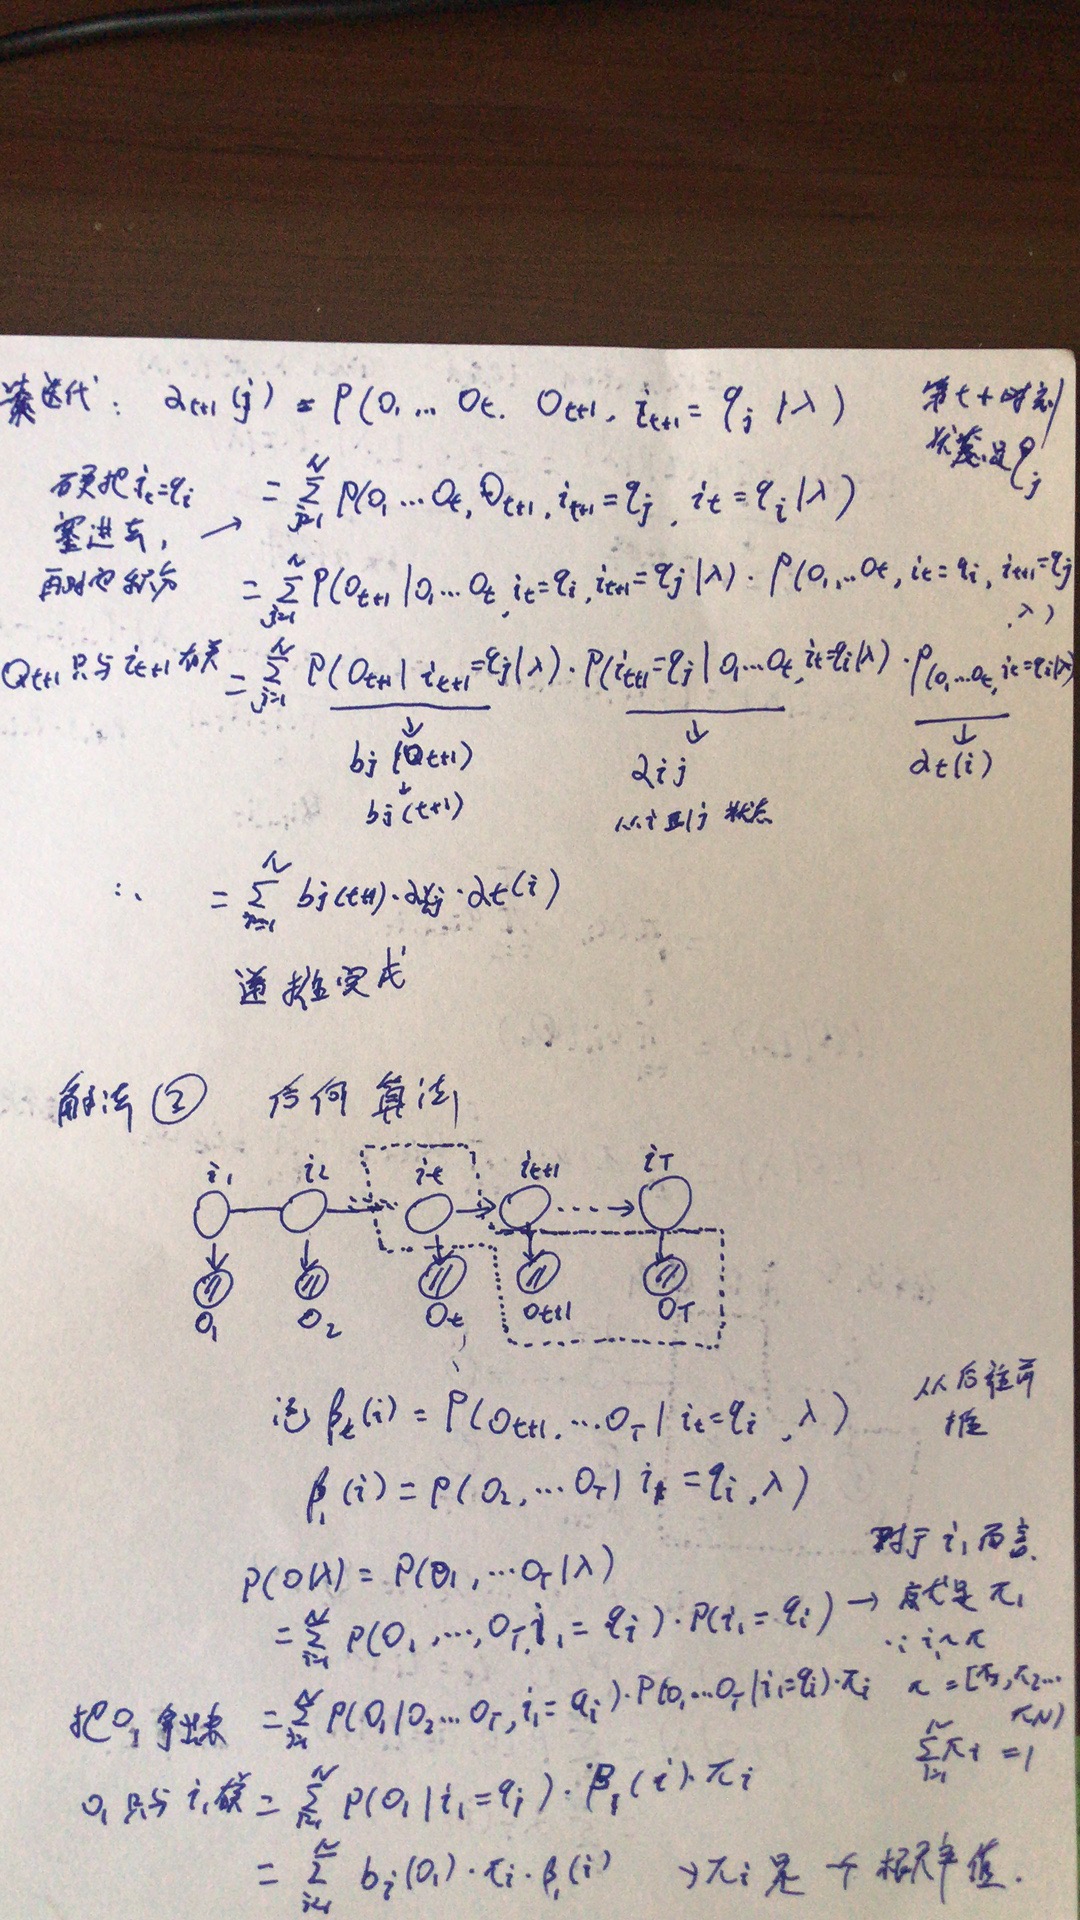 迭代: α_{t+1}(j) = P(O_1 ... O_t, O_{t+1}, i_{t+1} = q_j | λ)
第t+1时刻
状态是q_j
硬把 i_t = q_i
塞进去,
再对它积分
→ = Σ_{j=1}^{N} P(O_1 ... O_t, O_{t+1}, i_{t+1} = q_j, i_t = q_i | λ)
= Σ_{j=1}^{N} P(O_{t+1} | O_1 ... O_t, i_t = q_i, i_{t+1} = q_j | λ) · P(O_1 ... O_t, i_t = q_i, i_{t+1} = q_j, λ)
O_{t+1} 只与 i_{t+1} 有关 = Σ_{j=1}^{N} P(O_{t+1} | i_{t+1} = q_j | λ) · P(i_{t+1} = q_j | O_1 ... O_t, i_t = q_i | λ) · P(O_1 ... O_t, i_t = q_i | λ)
↓ ↓ ↓
b_j(O_{t+1}) α_{ij} α_t(i)
↓
b_j(t+1) 从i到j状态
∴ = Σ_{i=1}^{N} b_j(t+1) · α_{ij} · α_t(i)
递推完成
解法② 后向算法
i_1 i_2 i_t i_{t+1} i_T
O_1 O_2 O_t O_{t+1} O_T
记 β_t(i) = P(O_{t+1}, ... O_T | i_t = q_i, λ)
从后往前
推
β_1(i) = P(O_2, ... O_T | i_1 = q_i, λ)
P(O|λ) = P(O_1, ... O_T | λ)
= Σ_{i=1}^{N} P(O_1, ..., O_T, i_1 = q_i) · P(i_1 = q_i) →
对于 i_1 而言,
就是 π_1
∵ i_1 ~ π
π = [π_1, π_2 ... π_N)
Σ_{i=1}^{N} π_i = 1
把 O_1 拿出来 = Σ_{i=1}^{N} P(O_1 | O_2 ... O_T, i_1 = q_i) · P(O_1 ... O_T | i_1 = q_i) · π_i
O_1 只与 i_1 有关 = Σ_{i=1}^{N} P(O_1 | i_1 = q_i) · β_1(i) · π_i
= Σ_{i=1}^{N} b_i(O_1) · π_i · β_1(i) → π_i 是一个概率值.